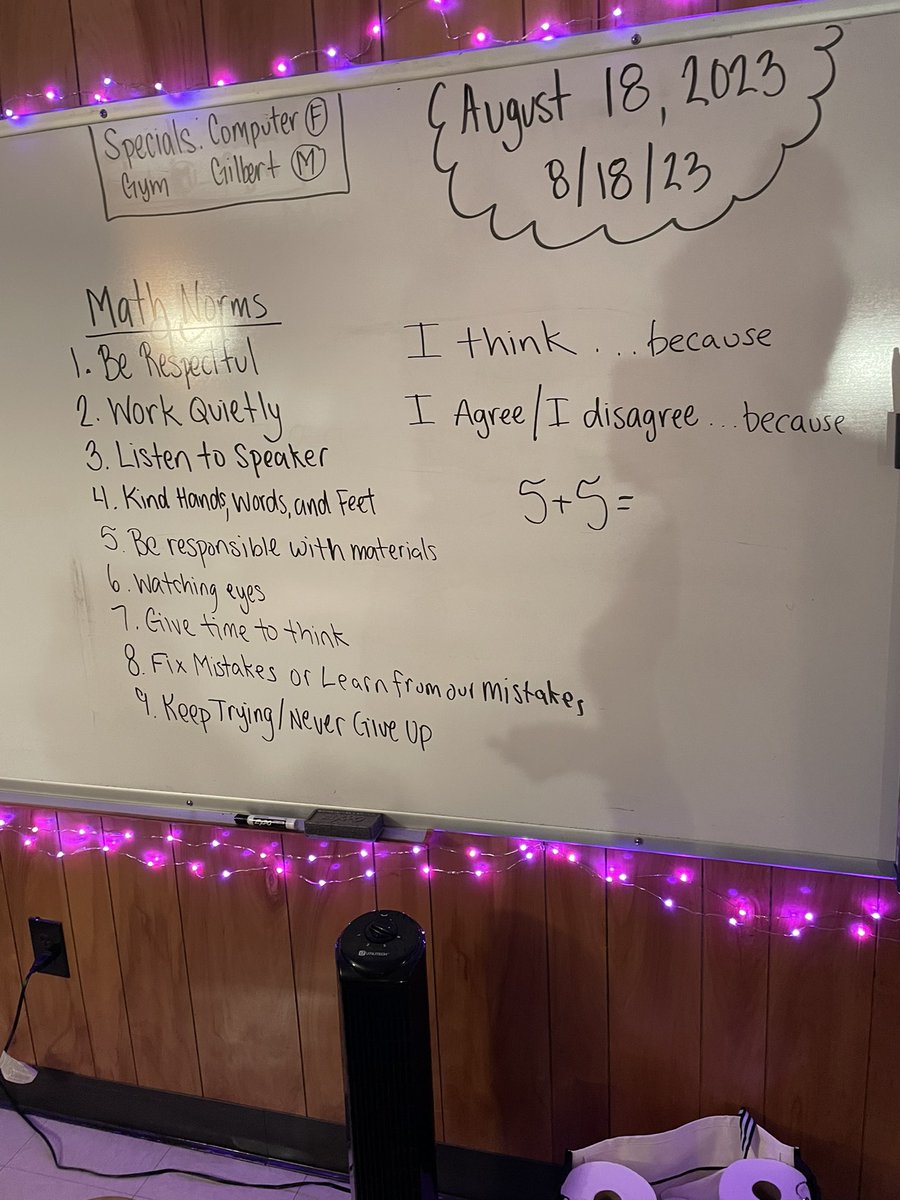 Specials: Computer F
Gym Gilbert M
August 18, 2023
8/18/23
Math Norms
1. Be Respectful
2. Work Quietly
3. Listen to Speaker
4. Kind Hands, Words, and Feet
5. Be responsible with materials
6. Watching eyes
7. Give time to think
8. Fix Mistakes or Learn from our mistakes
9. Keep Trying/Never Give Up
I think ... because
I Agree/I disagree ... because
5+5=
EXPO
UTILITECH